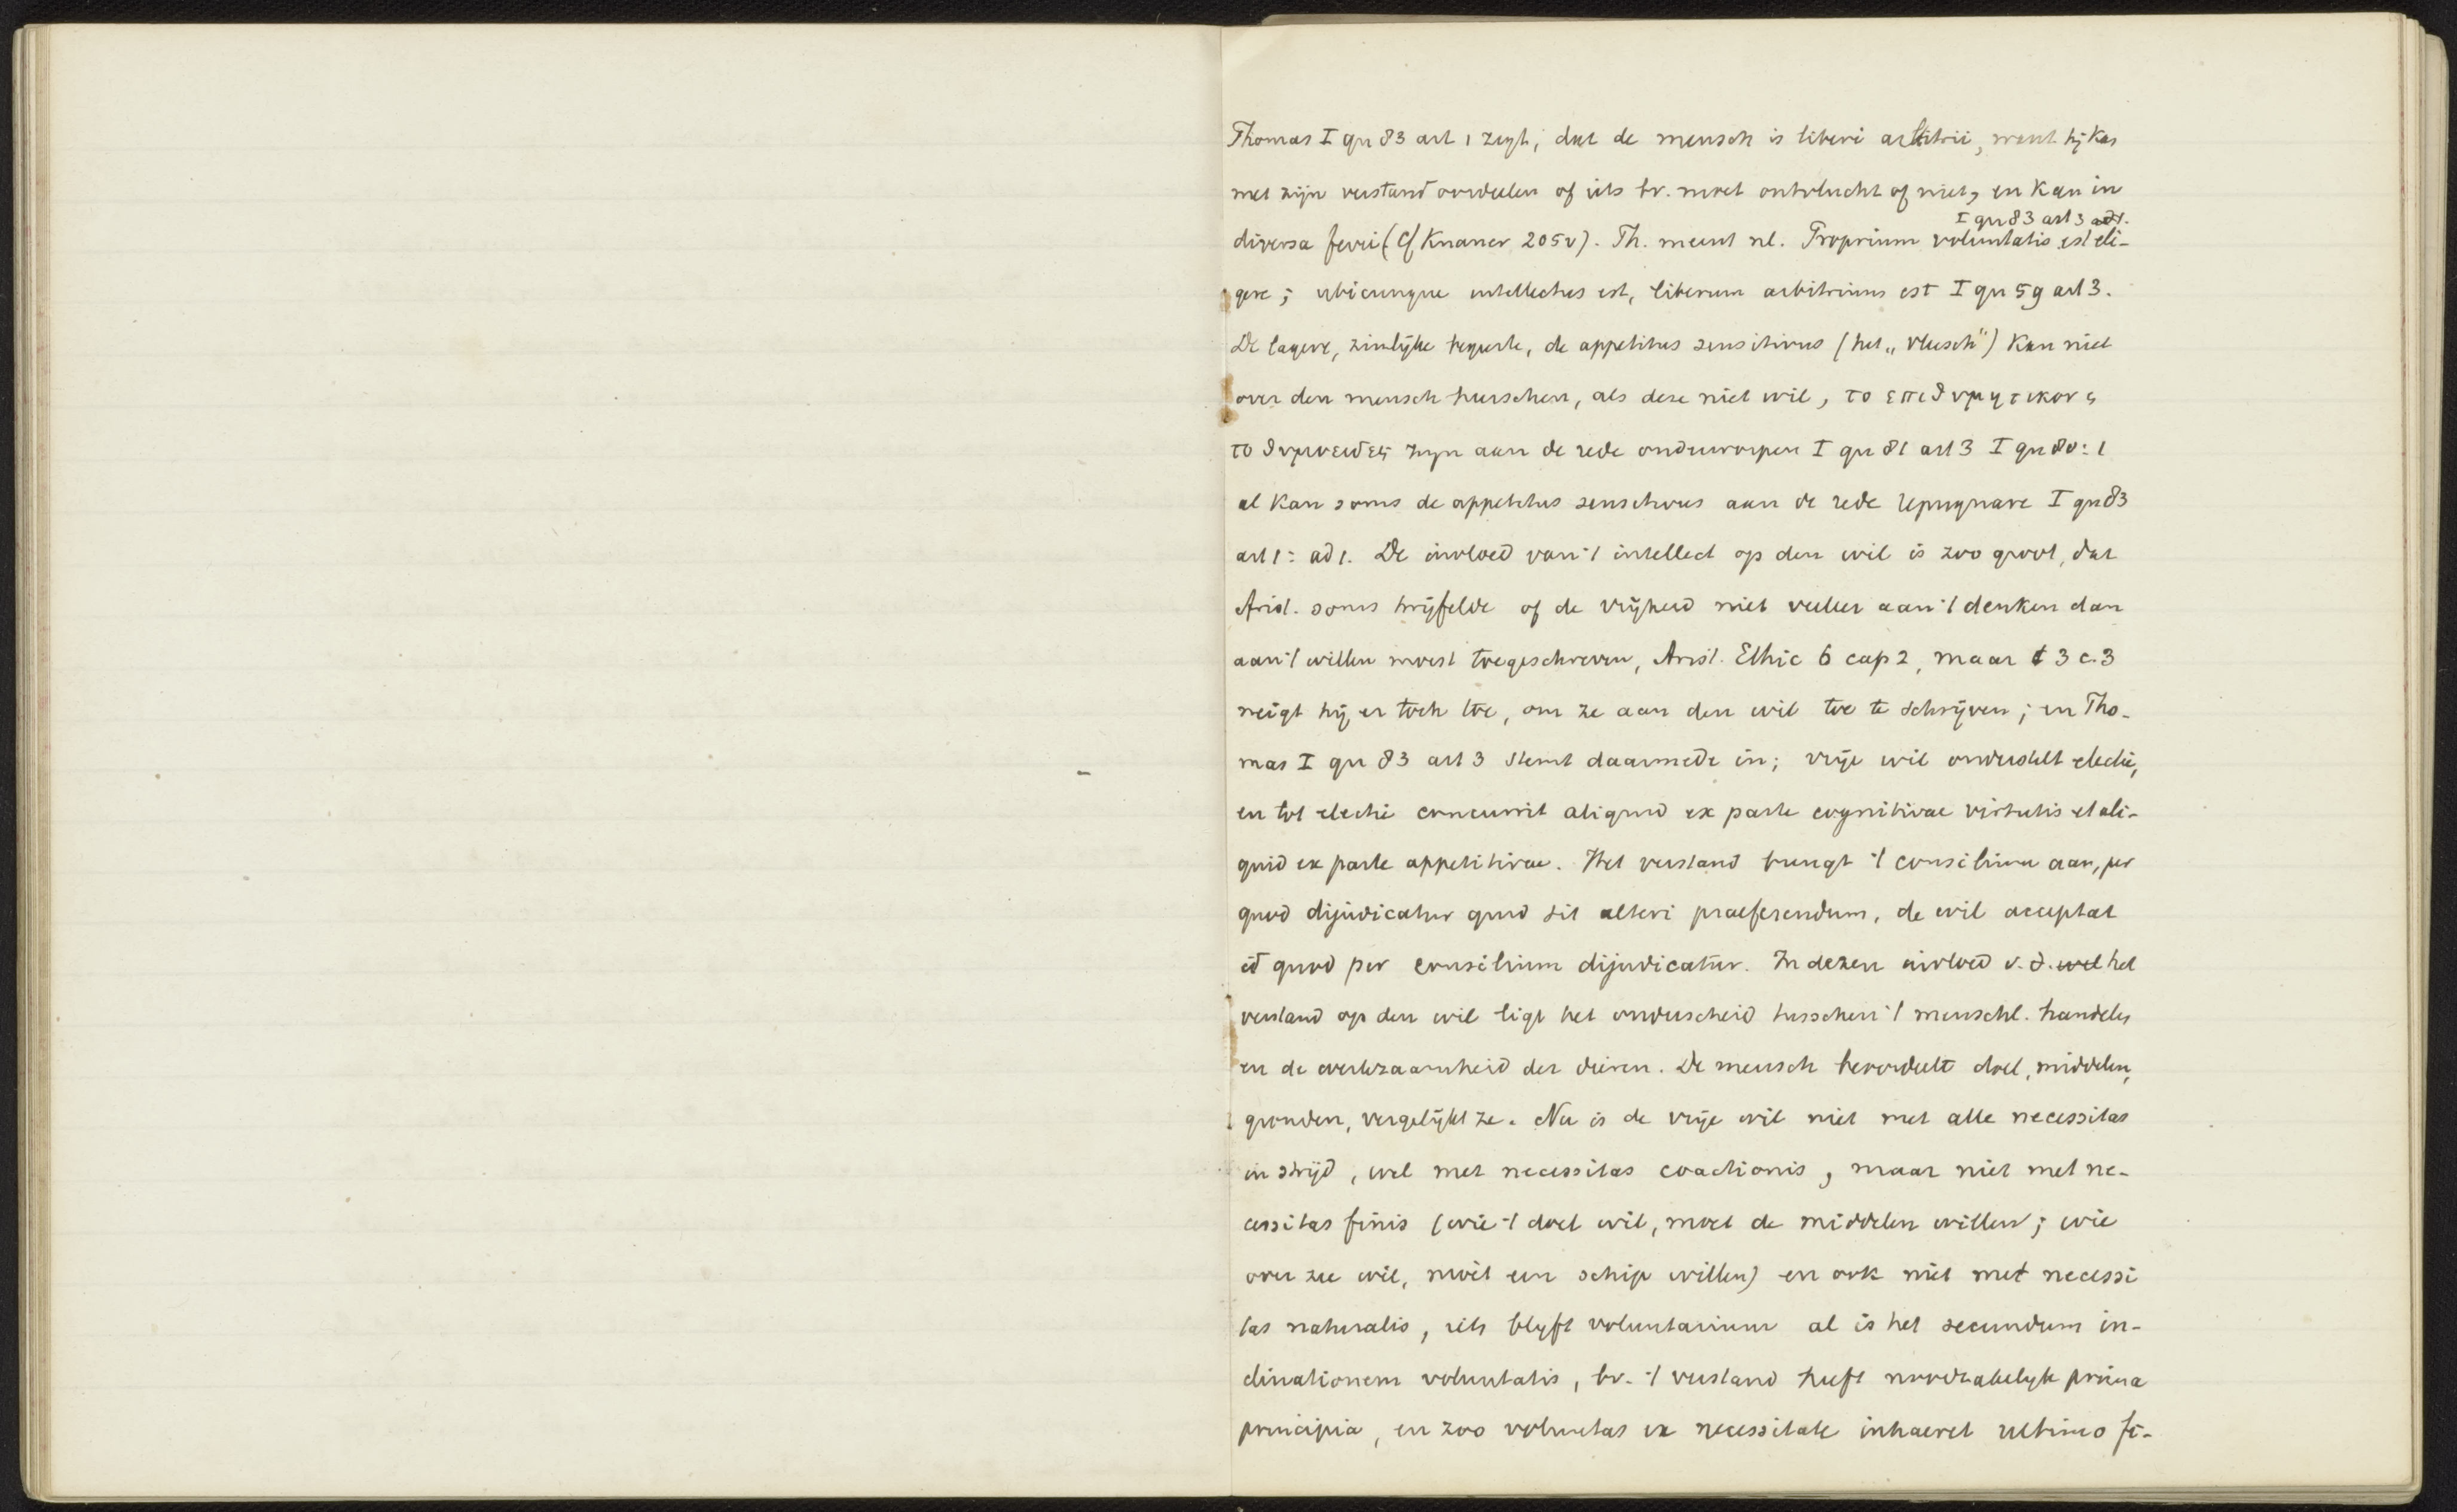 Thomas I qu 83 art 1 zegt, dat de mensch is liberi arbitrii, want hij kan
met zijn verstand oordeelen of iets bv. moet ontvlucht of niet, en kan in
I qu 83 art 3 ad 1.
diversa ferri (Cf Knauer 205v). Th. meent nl. Proprium voluntatis est eli-
gere; ubicunque intellectus est, liberum arbitrium est I qu 59 art 3.
De lagere, zinlijke begeerte, de appetitus sensitivus (het „vleesch") kan niet
over den mensch heerschen, als deze niet wil, το επιθυμητικον en
το θυμοειδες zijn aan de rede onderworpen I qu 81 art 3 I qu 80:1
al kan soms de appetitus sensitivus aan de rede repugnare I qu 83
art 1: ad 1. De invloed van 't intellect op den wil is zoo groot, dat
Arist. soms twijfelde of de vrijheid niet veeleer aan 't denken dan
aan 't willen moest toegeschreven, Arist. Ethic 6 cap 2, maar 3 c. 3
neigt hij er toch toe, om ze aan den wil toe te schrijven; en Tho-
mas I qu 83 art 3 stemt daarmede in; vrije wil onderstelt electie,
en tot electie concurrit aliquid ex parte cognitivae virtutis et ali-
quid ex parte appetitivae. Het verstand brengt 't consilium aan, per
quod dijudicatur quid sit alteri praeferendum, de wil acceptat
id quod per consilium dijudicatur. In dezen invloed v. d. wil het
verstand op den wil ligt het onderscheid tusschen 't menschl. handelen
en de werkzaamheid der dieren. De mensch beoordeelt doel, middelen,
gronden, vergelijkt ze. Nu is de vrije wil niet met alle necessitas
in strijd, wel met necessitas coactionis, maar niet met ne-
cessitas finis (wie 't doel wil, moet de middelen willen; wie
over zee wil, moet een schip willen) en ook niet met necessi
tas naturalis, iets blijft voluntarium al is het secundum in-
clinationem voluntatis, bv. 't verstand heeft noodzakelijk prima
principia, en zoo voluntas ex necessitate inhaeret ultimo fi-